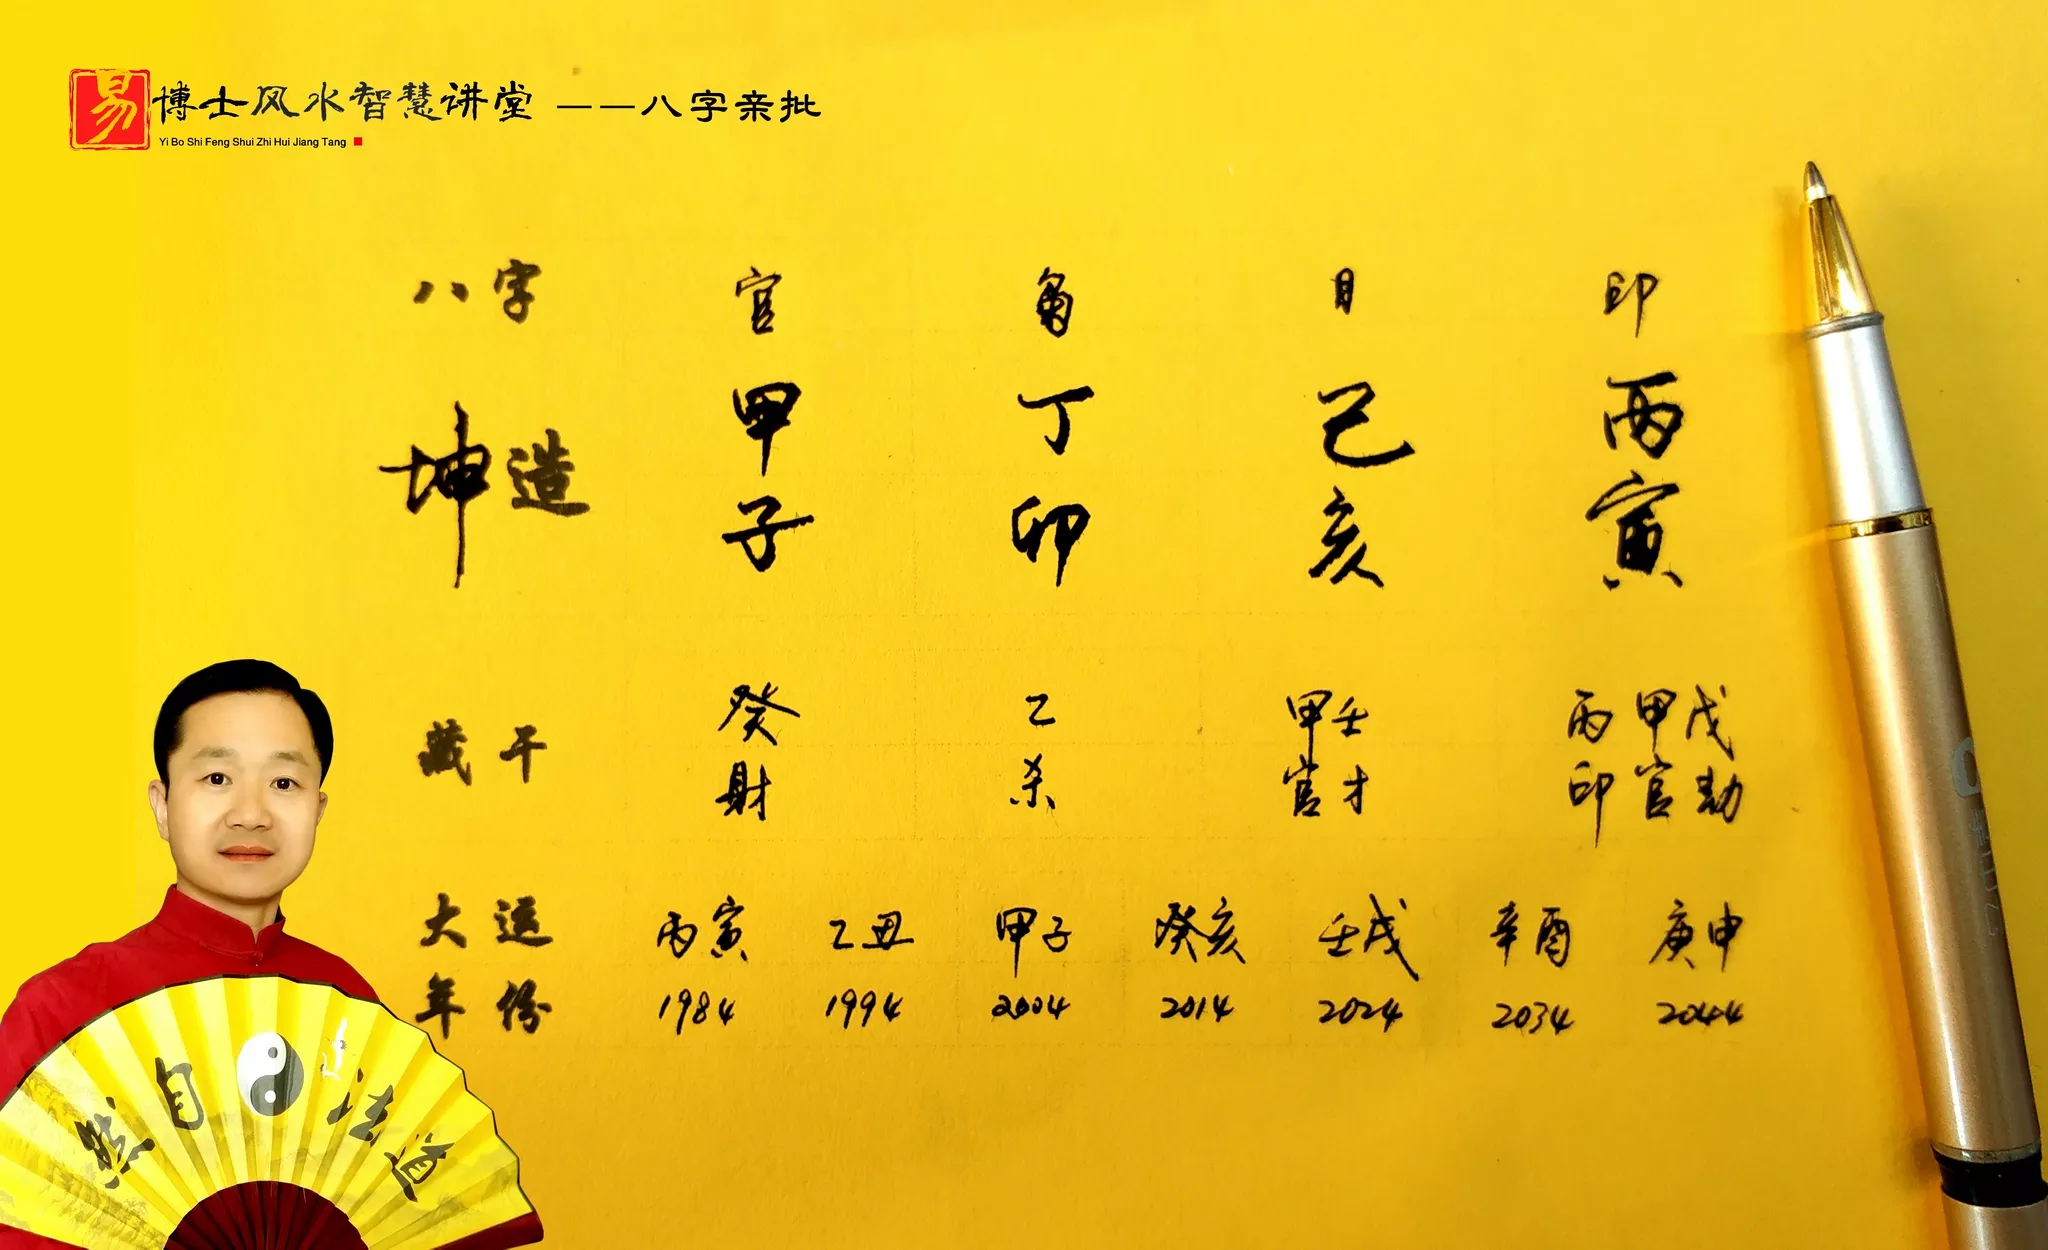 易 博士风水智慧讲堂 ——八字亲批
Yi Bo Shi Feng Shui Zhi Hui Jiang Tang
八字 官 日 印
坤造 甲 丁 己 丙
子 卯 亥 寅
藏干 癸 乙 甲壬 丙甲戊
財 杀 官才 印官劫
大运 丙寅 乙丑 甲子 癸亥 壬戌 辛酉 庚申
年份 1984 1994 2004 2014 2024 2034 2044
道法自然